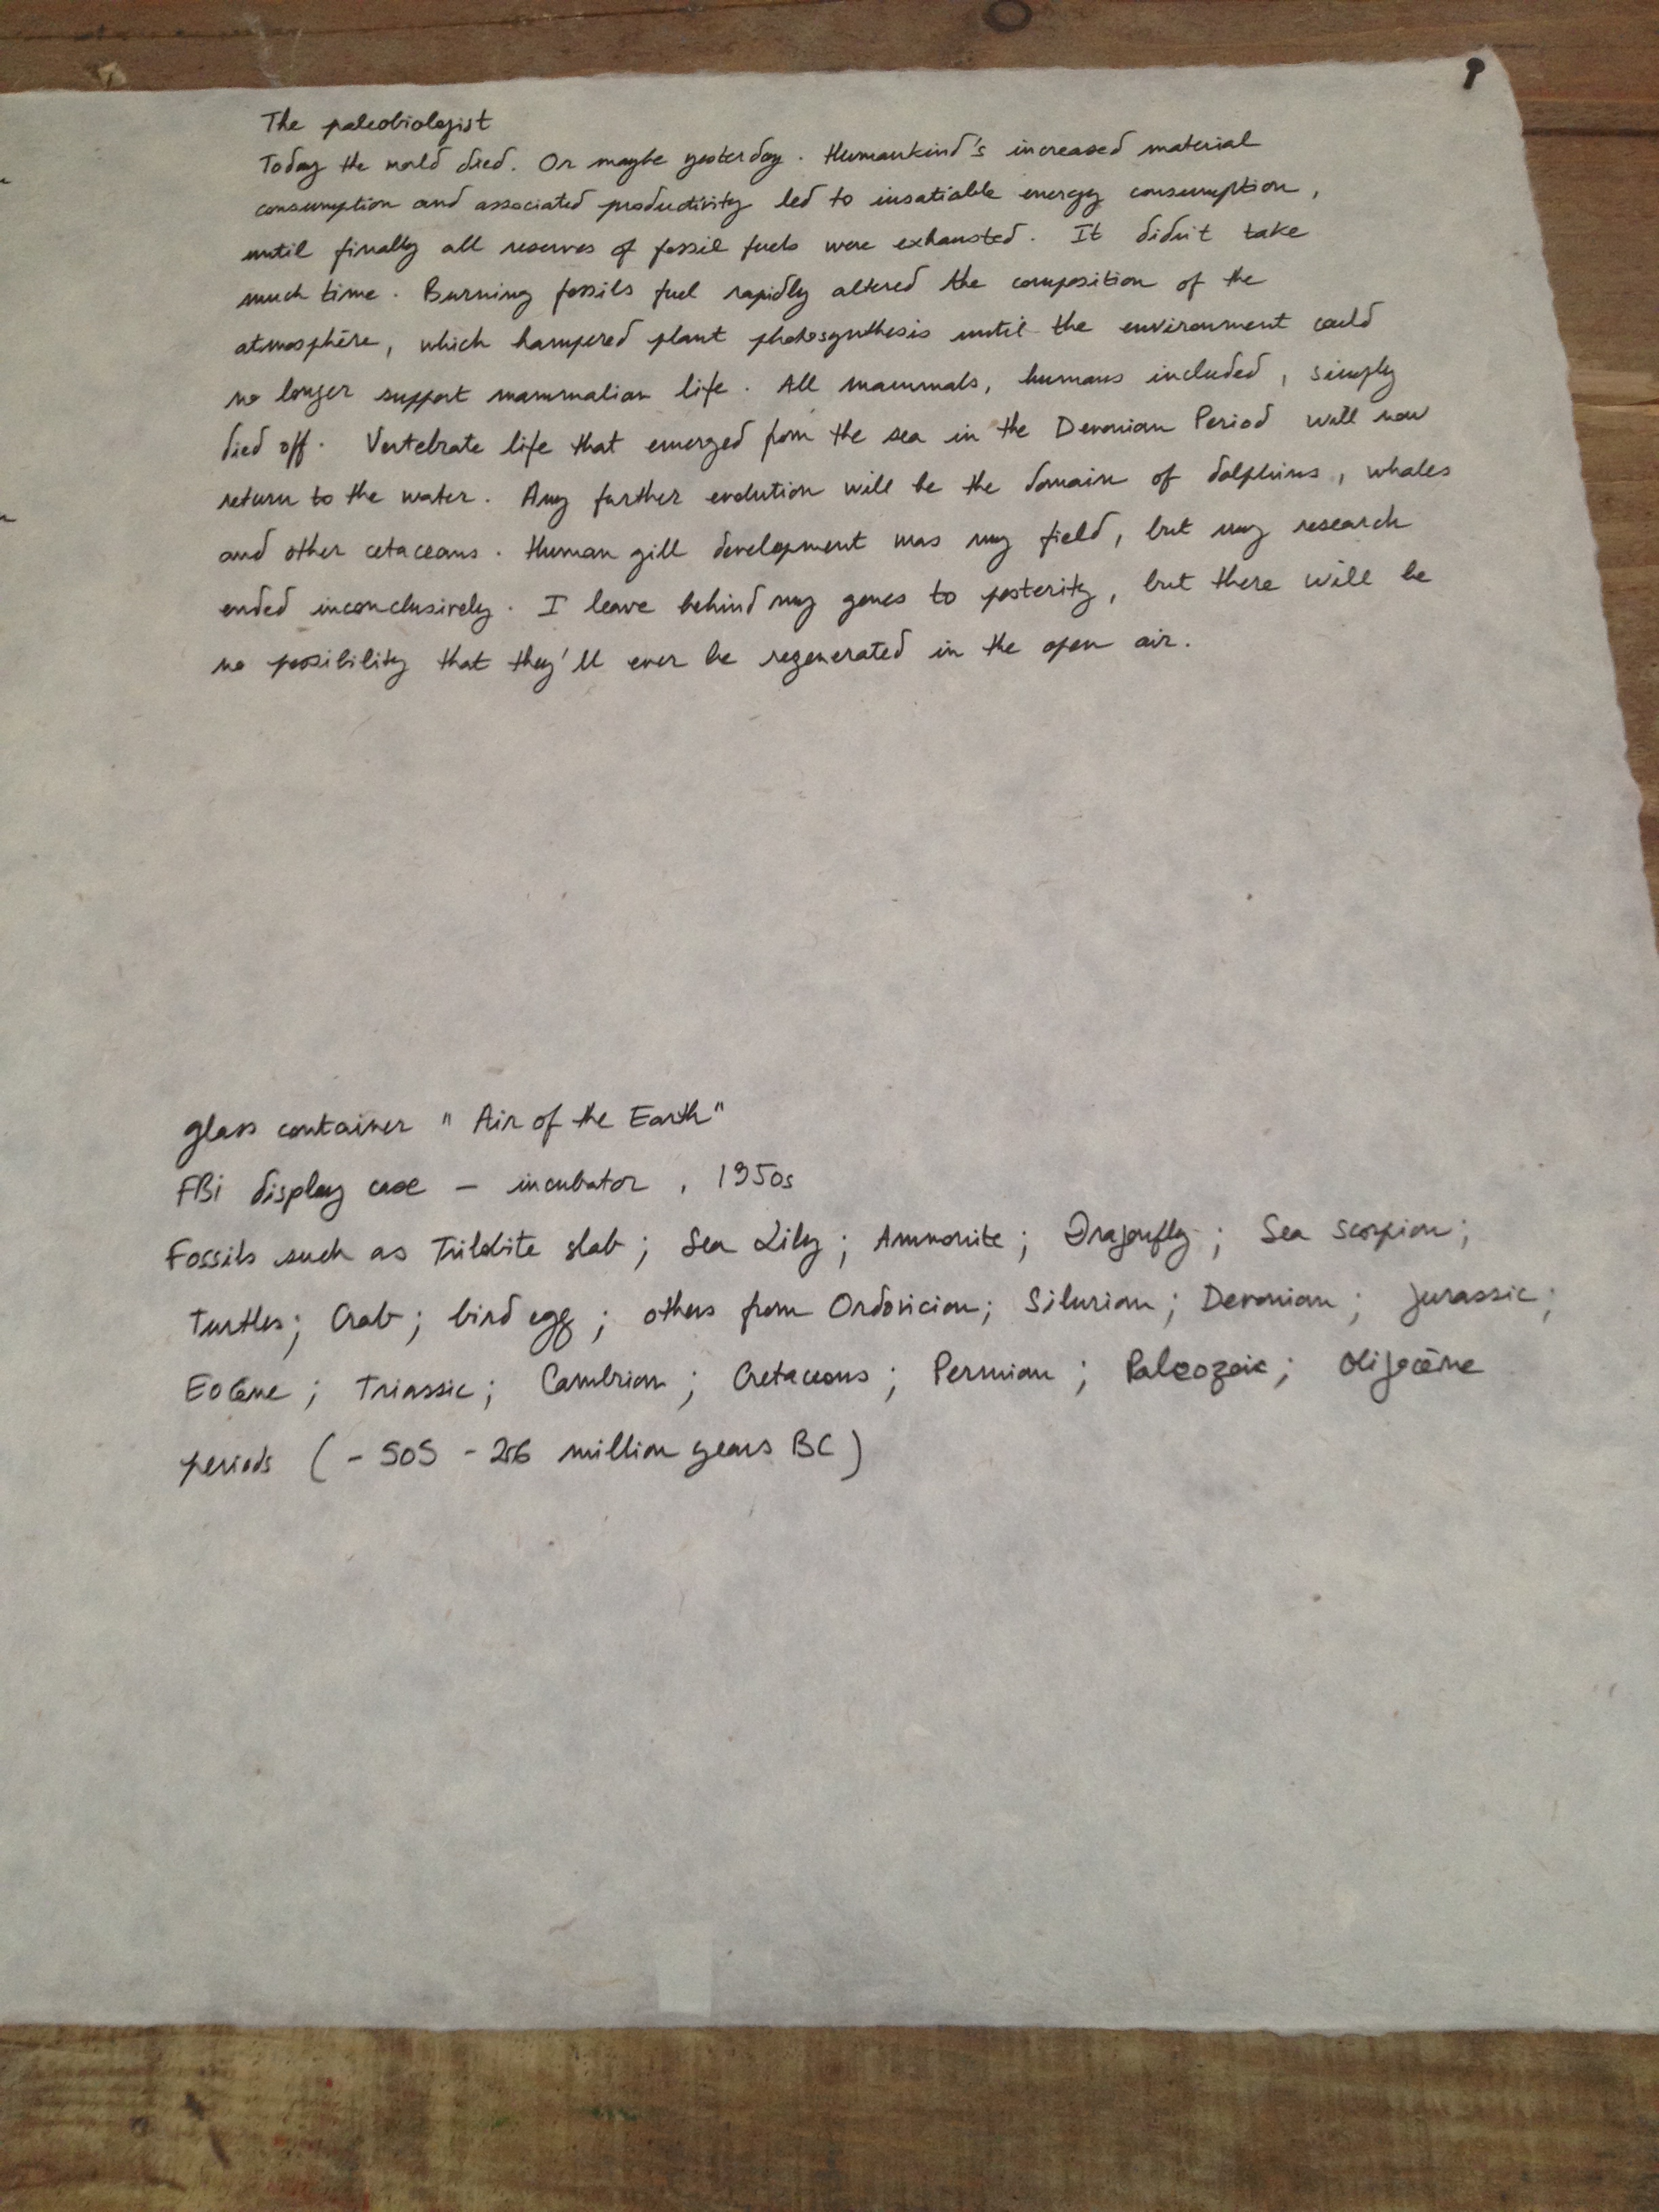 The paleobiologist
Today the world died. Or maybe yesterday. Humankind's increased material
consumption and associated productivity led to insatiable energy consumption,
until finally all reserves of fossil fuels were exhausted. It didn't take
much time. Burning fossils fuel rapidly altered the composition of the
atmosphère, which hampered plant photosynthesis until the environment could
no longer support mammalian life. All mammals, humans included, simply
died off. Vertebrate life that emerged from the sea in the Devonian Period will now
return to the water. Any further evolution will be the domain of dolphins, whales
and other cetaceans. Human gill development was my field, but my research
ended inconclusively. I leave behind my genes to posterity, but there will be
no possibility that they'll ever be regenerated in the open air.
glass container "Air of the Earth"
FBi display case – incubator, 1950s
Fossils such as Trilobite slab; Sea Lily; Ammonite; Dragonfly; Sea scorpion;
Turtles; Crab; bird egg; others from Ordovician; Silurian; Devonian; Jurassic;
Eocène; Triassic; Cambrian; Cretaceous; Permian; Paleozoic; Oligocène
periods (- 505 - 256 million years BC)